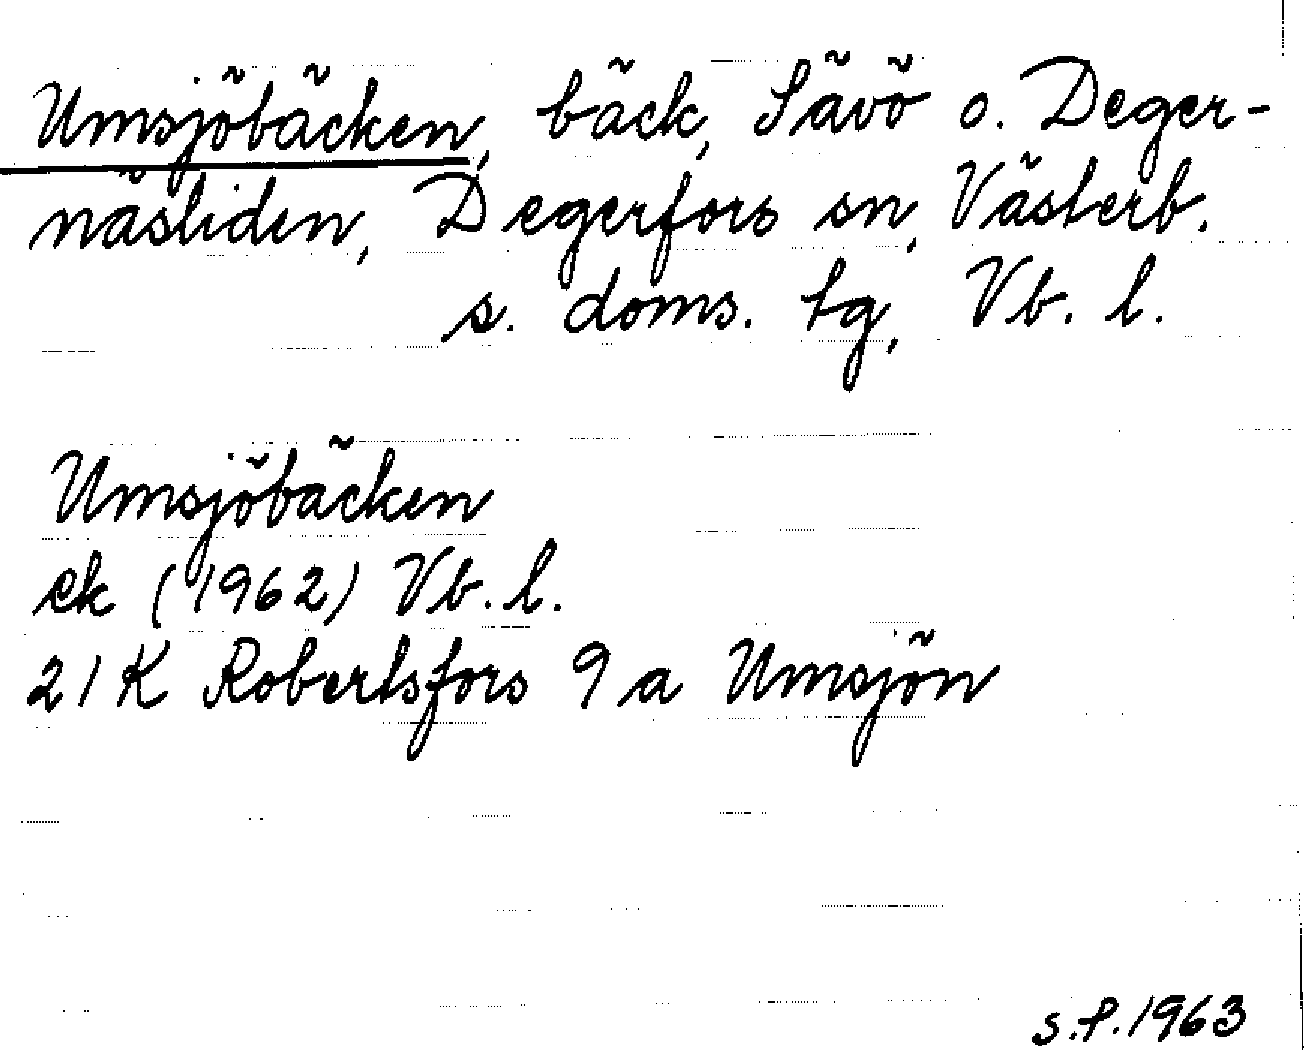 Umsjöbäcken, bäck, Sävö o. Deger-
näsliden, Degerfors sn, Västerb.
s. doms. tg, Vb. l.
Umsjöbäcken
ek (1962) Vb. l.
21K Robertsfors 9a Umsjön
S.P. 1963